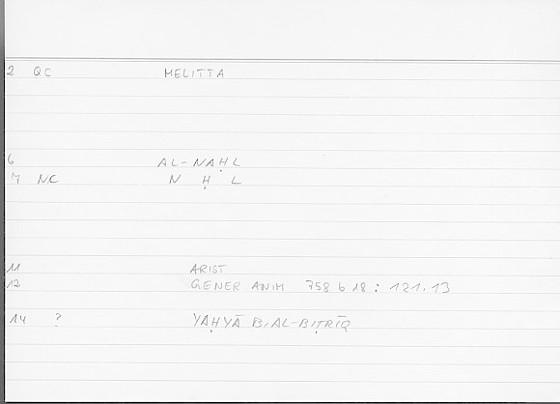 2 QC MELITTA
6 AL-NAḤL
7 NC N Ḥ L
11 ARIST
12 GENER ANIM 758 b 18 : 121.13
14 ? YAḤYĀ B. AL-BIṬRĪQ